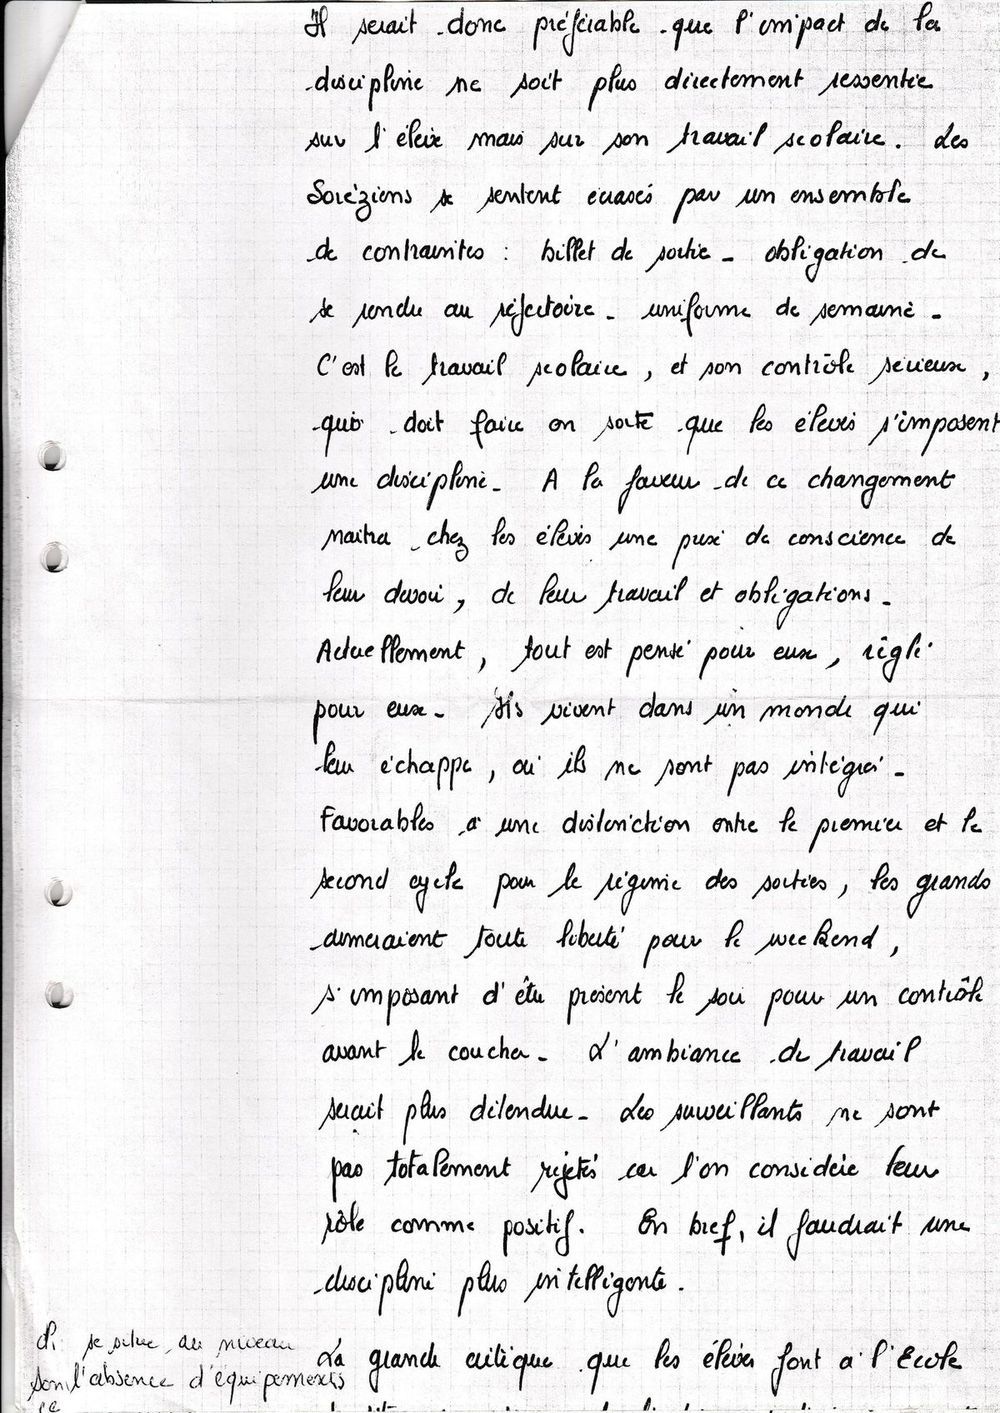 Il serait donc préférable que l'impact de la
discipline ne soit plus directement ressentie
sur l'élève mais sur son travail scolaire. Les
Soréziens se sentent écrasés par un ensemble
de contraintes : billet de sortie - obligation de
se rendre au réfectoire - uniforme de semaine -
C'est le travail scolaire, et son contrôle sérieux,
qui doit faire en sorte que les élèves s'imposent
une discipline - A la faveur de ce changement
naitra chez les élèves une prise de conscience de
leur devoir, de leur travail et obligations -
Actuellement, tout est pensé pour eux, réglé
pour eux - Ils vivent dans un monde qui
leur échappe, où ils ne sont pas intégrés -
Favorables à une distinction entre le premier et le
second cycle pour le régime des sorties, les grands
aimeraient toute liberté pour le weekend,
s'imposant d'être présent le soir pour un contrôle
avant le coucher - L'ambiance de travail
serait plus détendue - Les surveillants ne sont
pas totalement rejetés car l'on considère leur
rôle comme positif. En bref, il faudrait une
discipline plus intelligente.
La grande critique que les élèves font à l'Ecole
se situe au niveau
l'absence d'équipements